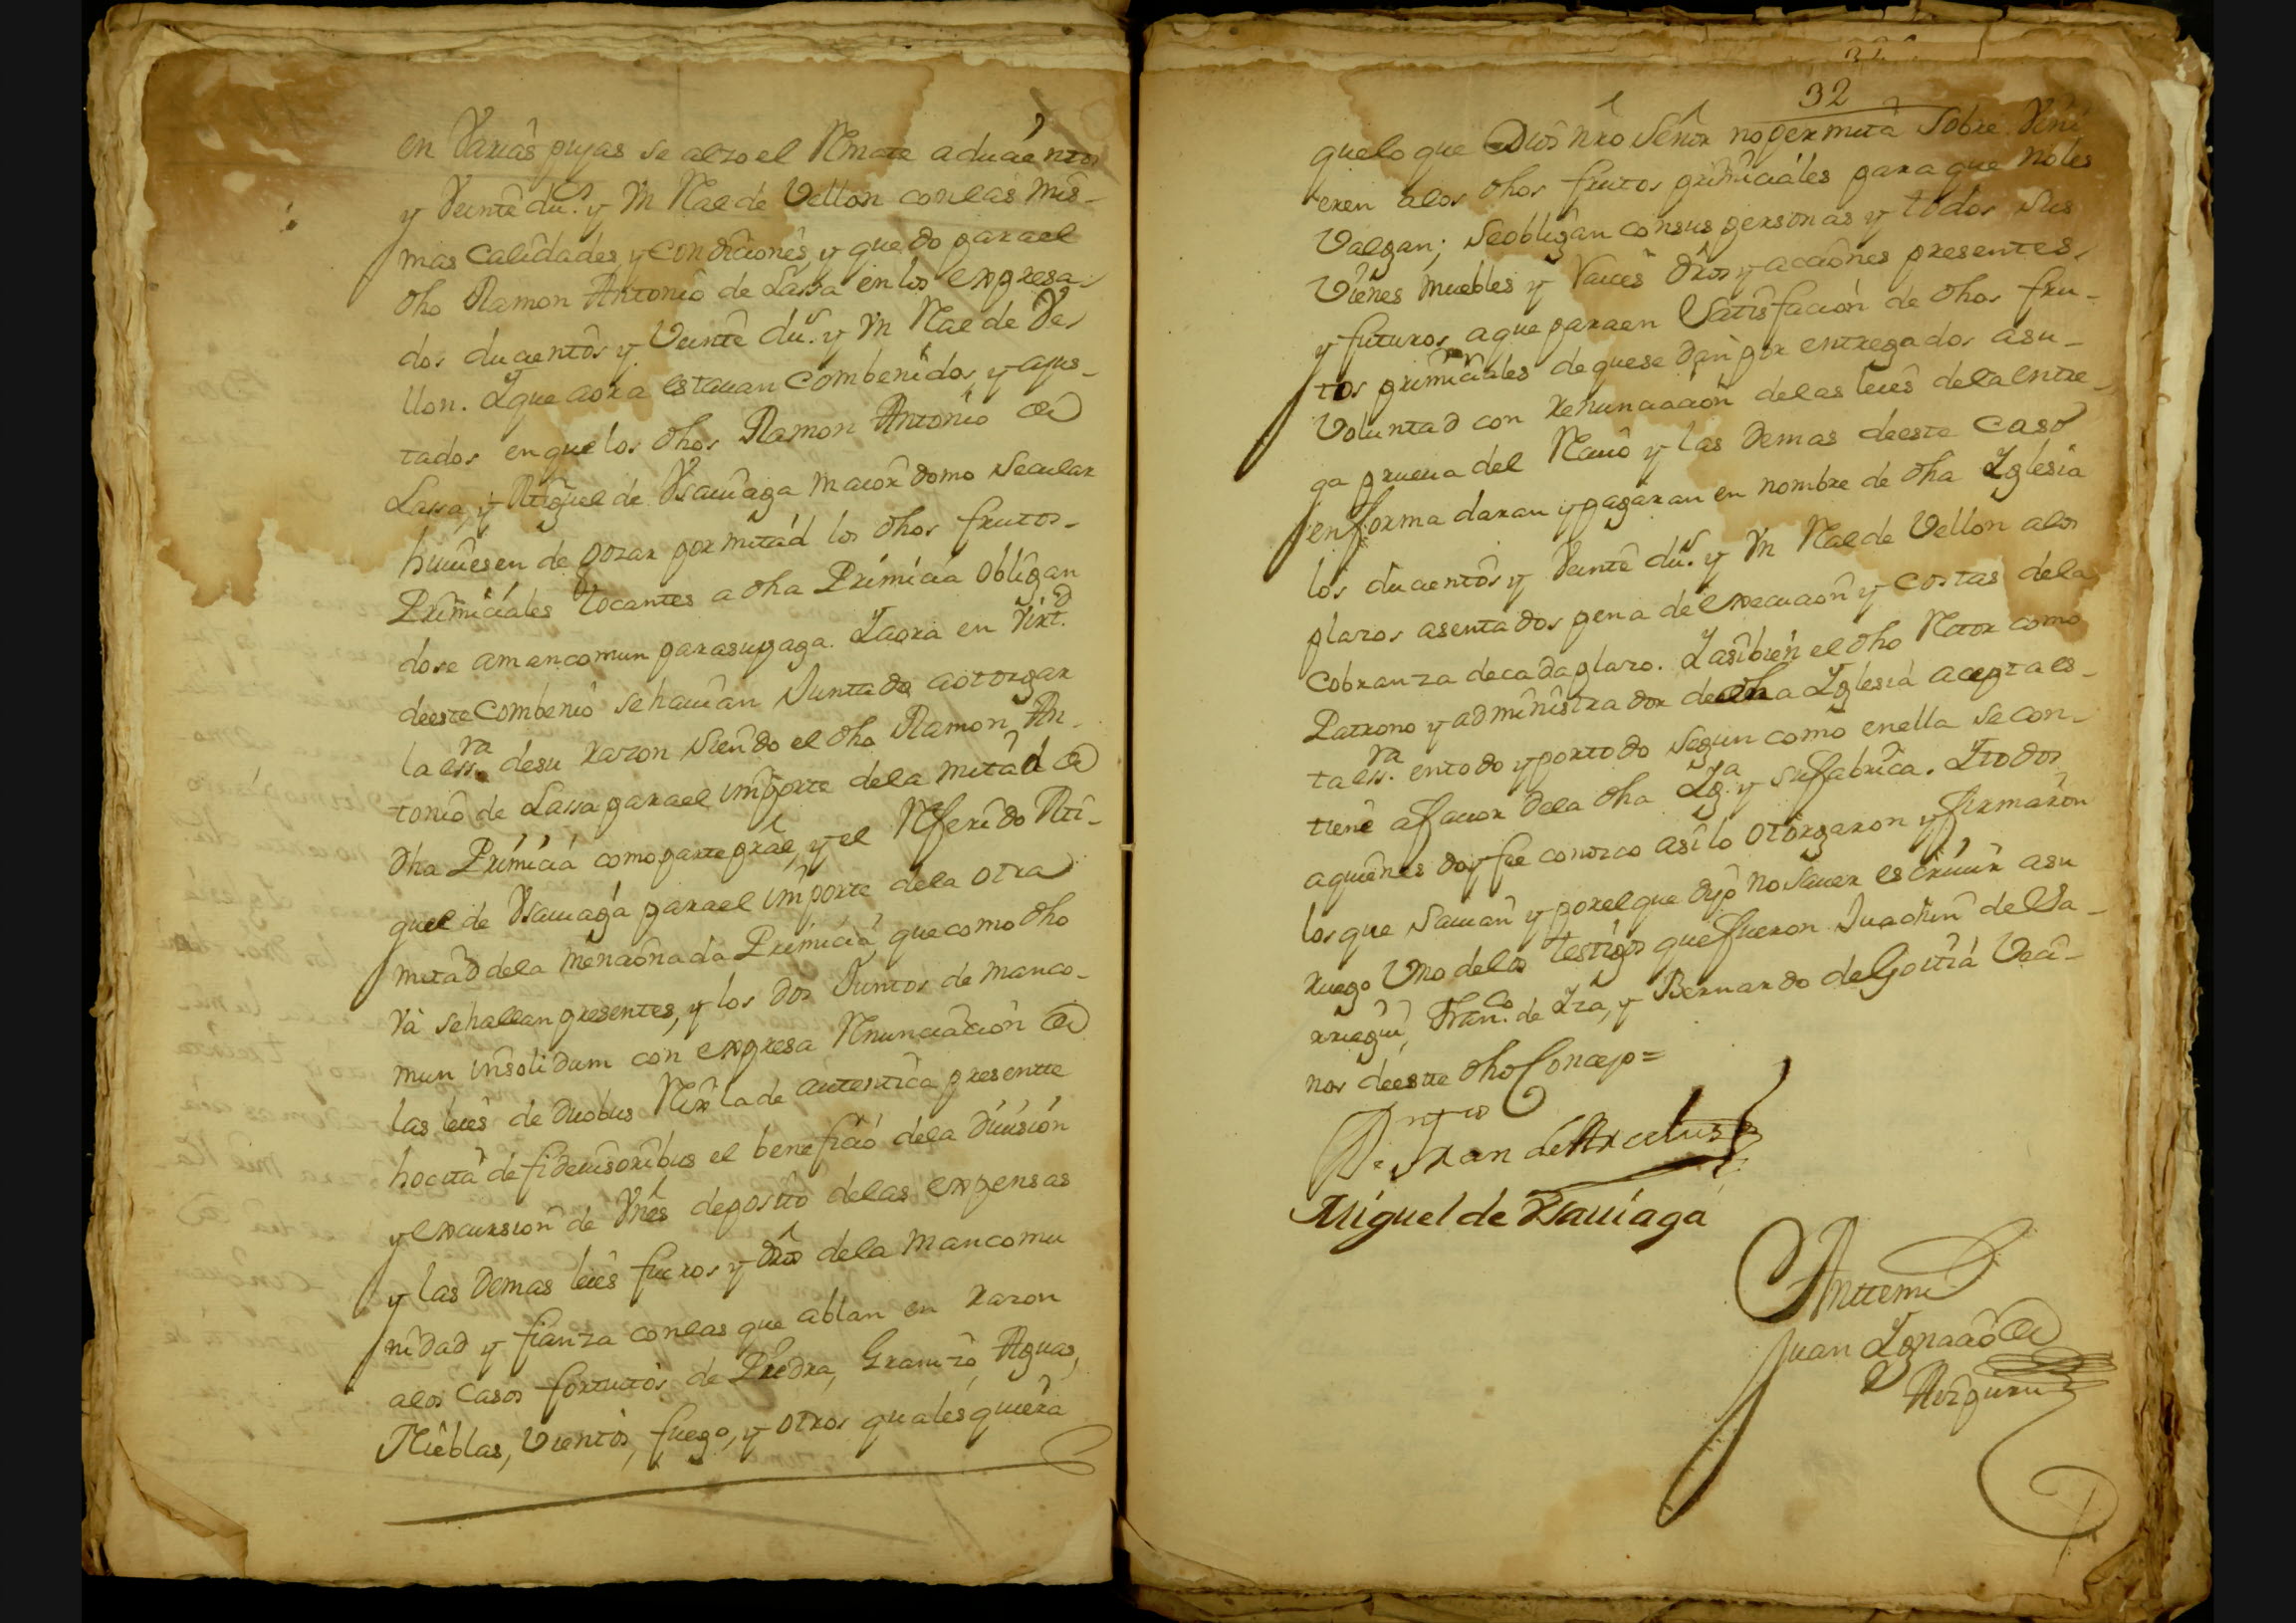 en Varias pujas se alzo el Remate a ducientos
y Veinte du.s y Vn Real de Vellon con las mis-
mas Calidades y Condiciones, y quedo para el
dho Ramon Antonio de Lassa en los expresa-
dos ducientos y Veinte du.s y Vn Real de Ve-
llon. Y que aora estauan Combenidos, y ajus-
tados en que los dhos Ramon Antonio de
Lassa, y Miguel de Vsauiaga maiordomo Secular
huuiesen de gozar por mitad los dhos frutos
Primiciales tocantes a dha Primicia obligan
dose a mancomun para su paga. Y aora en Virt.d
de este Combenio se hauian Juntado a otorgar
la ess.ra de su razon siendo el dho Ramon An-
tonio de Lassa para el importe de la mitad de
dha Primicia como parte pral, y el Referido Mi-
guel de Vsauiaga para el importe de la otra
mitad de la mencionada Primicia que como dho
Va se hallan presentes, y los dos Juntos de manco-
mun insolidum con expresa Renunciacion de
las leies de duobus Rex la de autentica presentte
hocita de fideiusoribus el beneficio de la diuision
y excursion de Vnes deposito de las expensas
y las demas leies fueros y dros de la mancomu
nidad y fianza con las que ablan en razon
a los Casos fortuitos de Piedra, Granizo, Aguas,
Nieblas, Vientos, fuego, y otros qualesquiera
32
que lo que Dios nro Señor no permita Sobre Vini
eren a los dhos frutos primiciales para que no les
Valgan; se obligan con sus personas y todos sus
Vienes muebles y raices dros y acciones presentes
y futuros a que para en Satisfacion de dhos fru-
tos primiciales de que se dan por entregados a su
Voluntad con renunciacion de las leies de la entre-
ga prueua del Reciuo y las demas de este caso
en forma daran y pagaran en nombre de dha Yglesia
los ducientos y Veinte du.s y Vn Real de Vellon a los
plazos asentados pena de execucion y costas de la
Cobranza de cada plazo. Y asibien el dho Retor como
Patrono y administrador de dha Yglesia acepta es-
ta ess.ra en todo y por todo segun como en ella se con-
tiene a fauor de la dha Yg.a y su fabrica. Y todos
a quienes doy fee conozco asi lo otorgaron y firmaron
los que sauian y por el que dijo no sauer escriuir a su
ruego Vno de los testigos que fueron Juachin de Sa-
rriegui, Fran.co de Yza, y Bernardo de Goitia Veci-
nos de este dho Concejo=
Miguel de Vsauiaga
Anttemi
Juan Ygnacio de